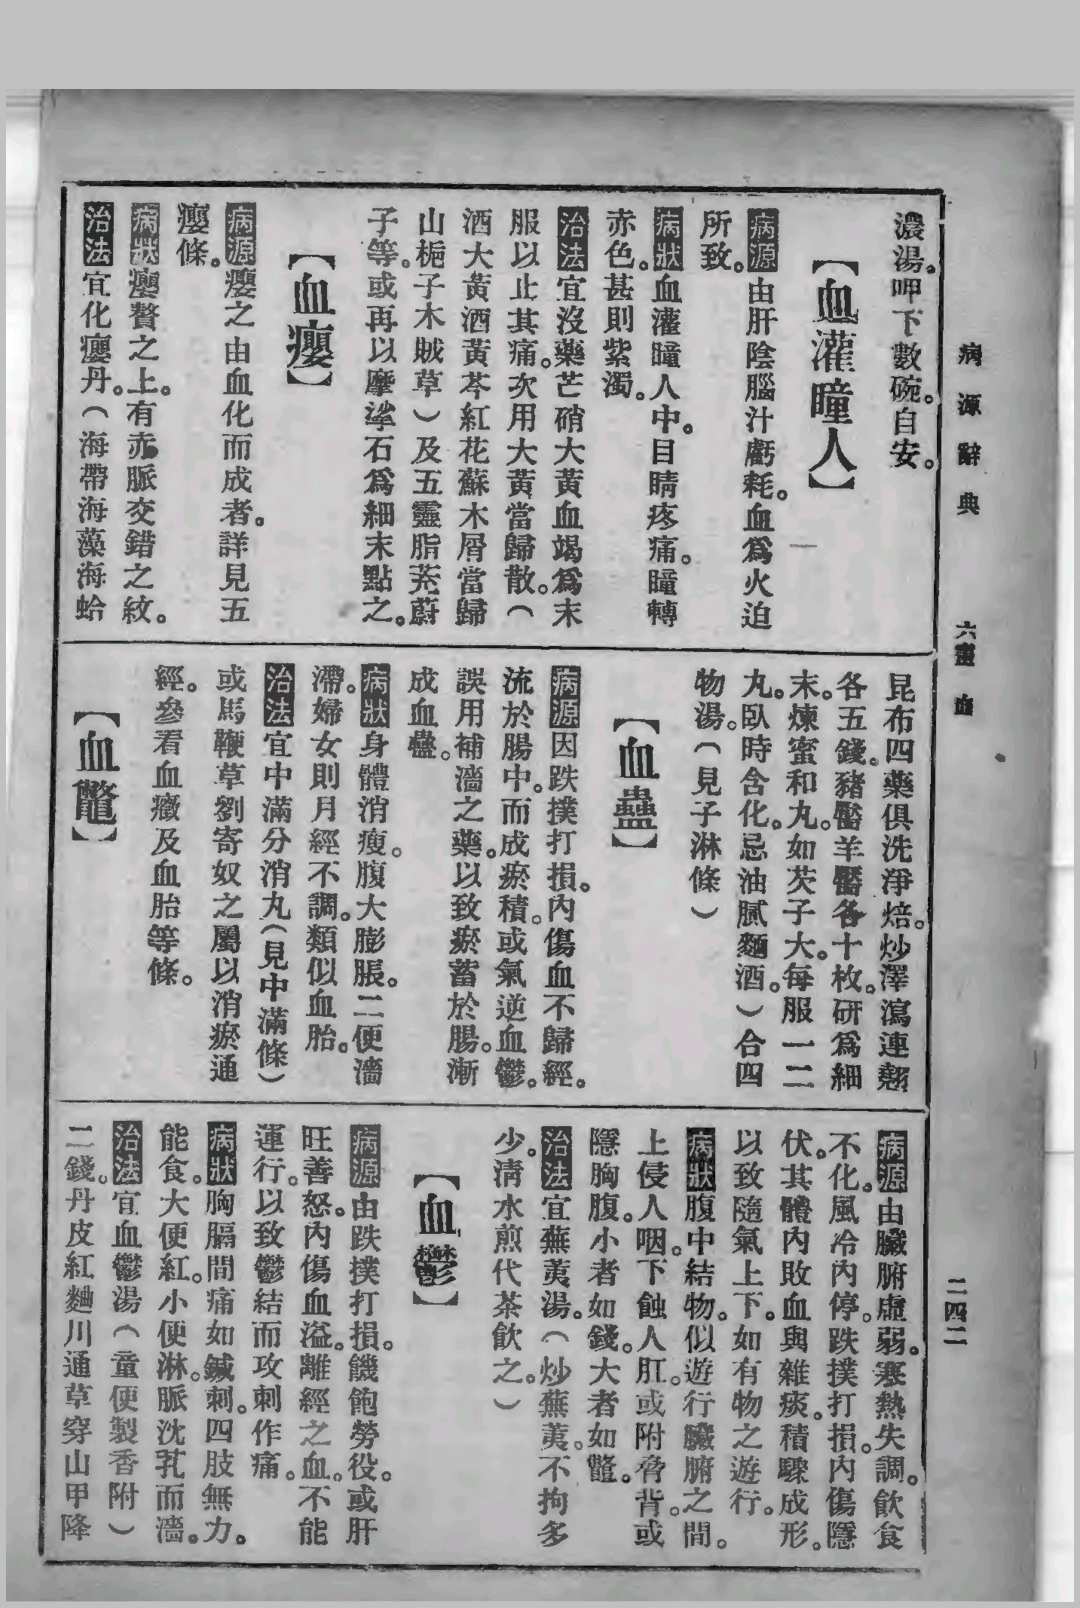 病源辭典
六畫 血
二四二
濃湯。呷下數碗。自安。
【血灌瞳人】
病源由肝陰腦汁虧耗。血爲火迫
所致。
病狀血灌瞳人中。目睛疼痛。瞳轉
赤色。甚則紫濁。
治法宜沒藥芒硝大黃血竭爲末
服以止其痛。次用大黃當歸散。（
酒大黃酒黃芩紅花蘇木屑當歸
山梔子木賊草）及五靈脂茺蔚
子等。或再以摩挲石爲細末點之。
【血癭】
病源癭之由血化而成者。詳見五
癭條。
病狀癭贅之上。有赤脈交錯之紋。
治法宜化癭丹。（海帶海藻海蛤
昆布四藥俱洗淨焙。炒澤瀉連翹
各五錢。豬靨羊靨各十枚。研爲細
末。煉蜜和丸。如芡子大。每服一二
丸。臥時含化。忌油膩麵酒。）合四
物湯。（見子淋條）
【血蠱】
病源因跌撲打損。內傷血不歸經。
流於腸中。而成瘀積。或氣逆血鬱。
誤用補濇之藥。以致瘀蓄於腸。漸
成血蠱。
病狀身體消瘦。腹大膨脹。二便濇
滯。婦女則月經不調。類似血胎。
治法宜中滿分消丸（見中滿條）
或馬鞭草劉寄奴之屬以消瘀通
經。參看血癥及血胎等條。
【血鼈】
病源由臟腑虛弱。寒熱失調。飲食
不化。風冷內停。跌撲打損。內傷隱
伏。其體內敗血與雜痰。積驟成形。
以致隨氣上下。如有物之遊行。
病狀腹中結物。似遊行臟腑之間。
上侵人咽。下蝕人肛。或附脅背。或
隱胸腹。小者如錢。大者如鼈。
治法宜蕪荑湯。（炒蕪荑。不拘多
少。清水煎代茶飲之。）
【血鬱】
病源由跌撲打損。饑飽勞役。或肝
旺善怒。內傷血溢。離經之血。不能
運行。以致鬱結而攻刺作痛。
病狀胸膈間痛如鍼刺。四肢無力。
能食。大便紅。小便淋。脈沈芤而濇。
治法宜血鬱湯（童便製香附）
二錢。丹皮紅麯川通草穿山甲降